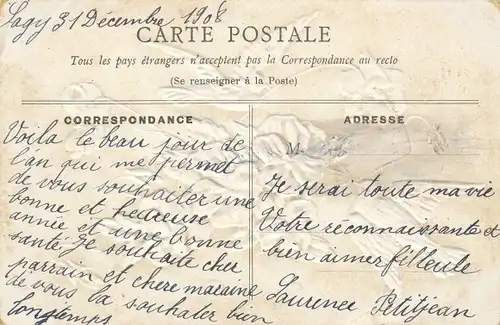 Lagy 31 Décembre 1908
CARTE POSTALE
Tous les pays étrangers n'acceptent pas la Correspondance au recto
(Se renseigner à la Poste)
CORRESPONDANCE
Voila le beau jour de
l'an qui me permet
de vous souhaiter une
bonne et heureuse
année et une bonne
santé je souhaite cher
parrain et chere maraine
de vous la souhaiter bien
longtemps
ADRESSE
M
Je serai toute ma vie
Votre réconnaissante et
bien aimer filleule
Laurence Petitjean